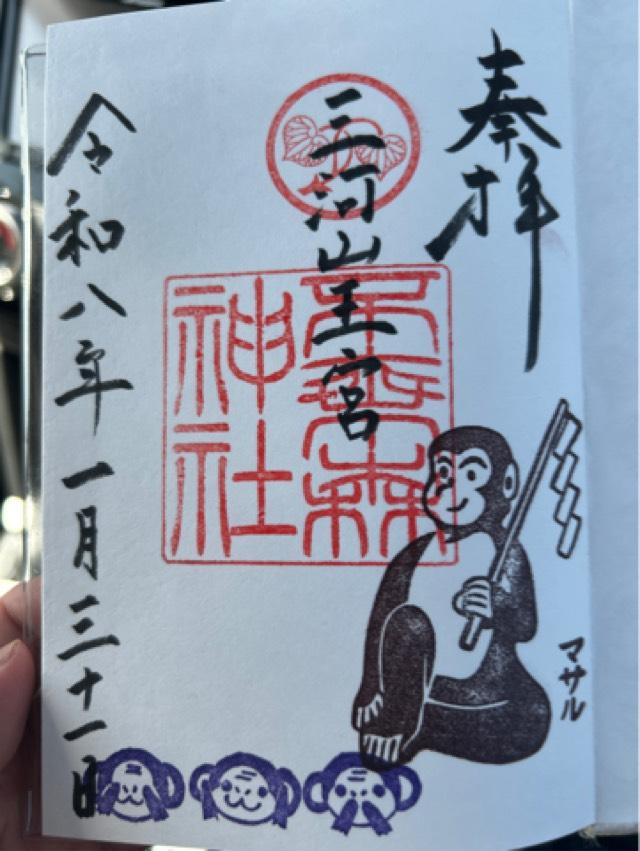 奉拝
三河山王宮
神社
マサル
令和八年一月三十一日